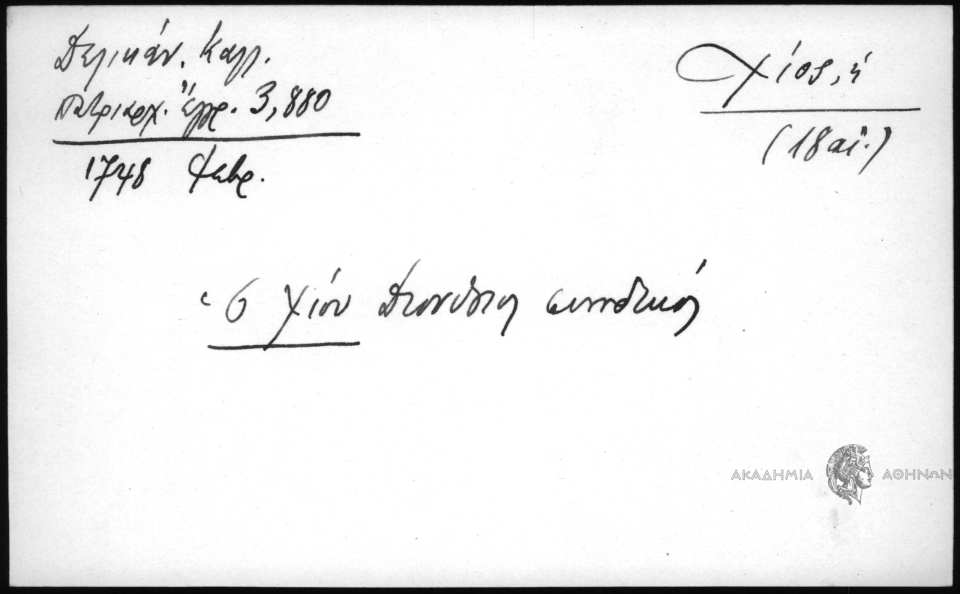 Δελικάν. Καλλ.
Πατριαρχ. Ἔγγρ. 3,880
1748 Φεβρ.
Χίος, ἡ
(18 αἰ.)
Ὁ Χίου Διονύσιος συνοδικός
ΑΚΑΔΗΜΙΑ ΑΘΗΝΩΝ